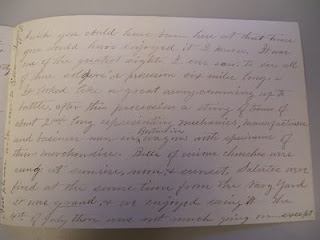 wish you could have been here at that time
you would have enjoyed it I know. It was
one of the greatest sights I ever saw to see all
of there a procession six miles long =
It looked like a great army coming up to
battle, after this procession a string of teams of
about 2 long representing mechanics, manufacturers
and business men in wagons with specimens of
their merchandise. Bells of various churches were
rung at sunrise, noon & sunset, Salutes were
fired at the same time from the Navy Yard
it was grand, & we enjoyed seeing it The
4th of July there was not much going on except